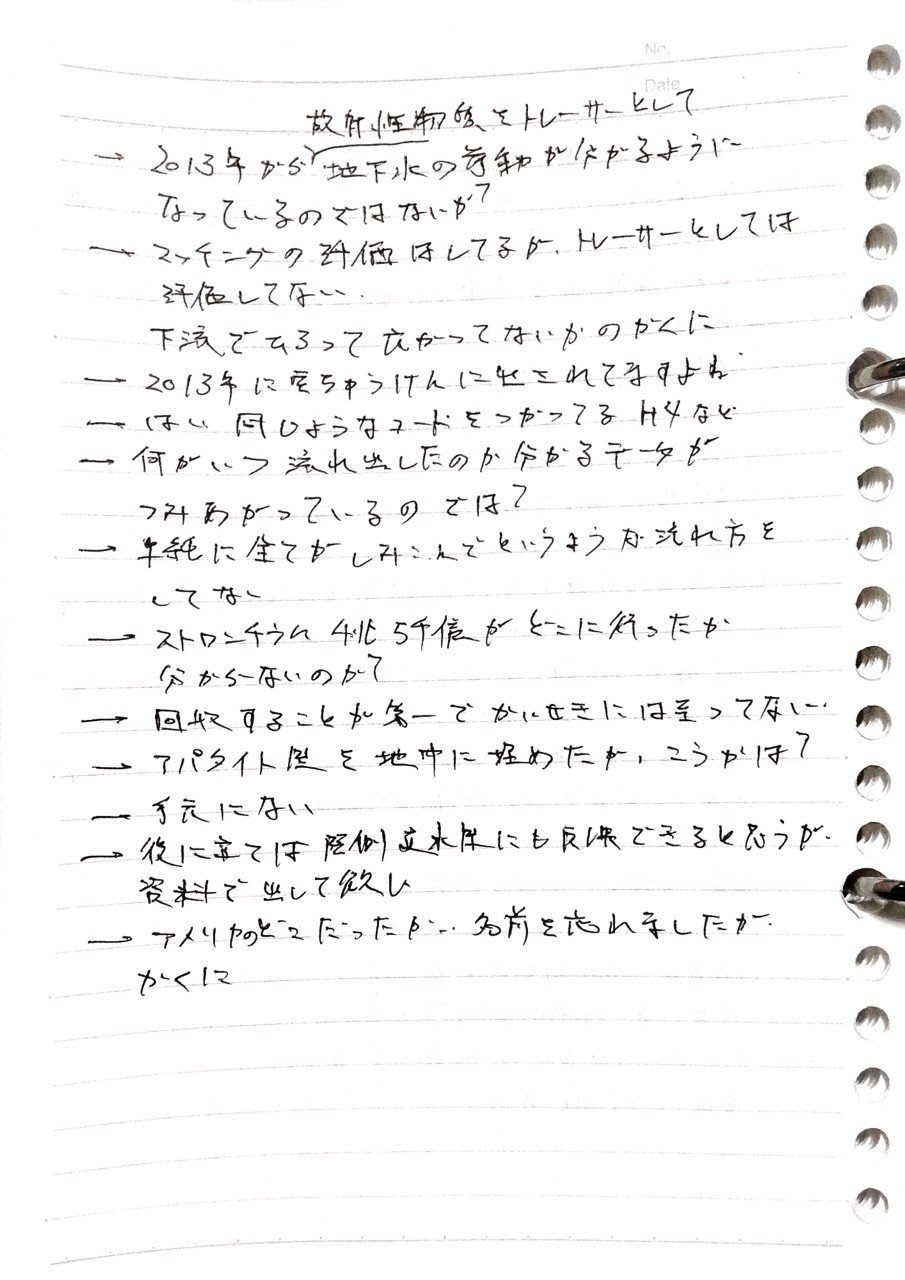 No.
Date
放射性物質をトレーサーとして
→ 2013年から地下水の挙動が分かるように
なっているのではないか?
→ マッチングの評価はしてるが、トレーサーとしては
評価してない.
下流で 広がってないかのかくに
→ 2013年に 出されてますよね
→ はい 同じようなコードをつかってる H4など
→ 何がいつ流れ出したのか分かるデータが
つみあがっているのでは?
→ 単純に全てがしみこんでというような流れ方を
してない
→ ストロンチウム 4兆5千億がどこに行ったか
分からないのか?
→ 回収することが第一でかいせきには至ってない.
→ アパタイト壁を地中に埋めたが、こうかは?
→ 手元にない
→ 役に立てば陸側 にも反映できると思うが.
資料で出して欲しい
→ アメリカのどこだったか.. 名前を忘れましたが.
かくに